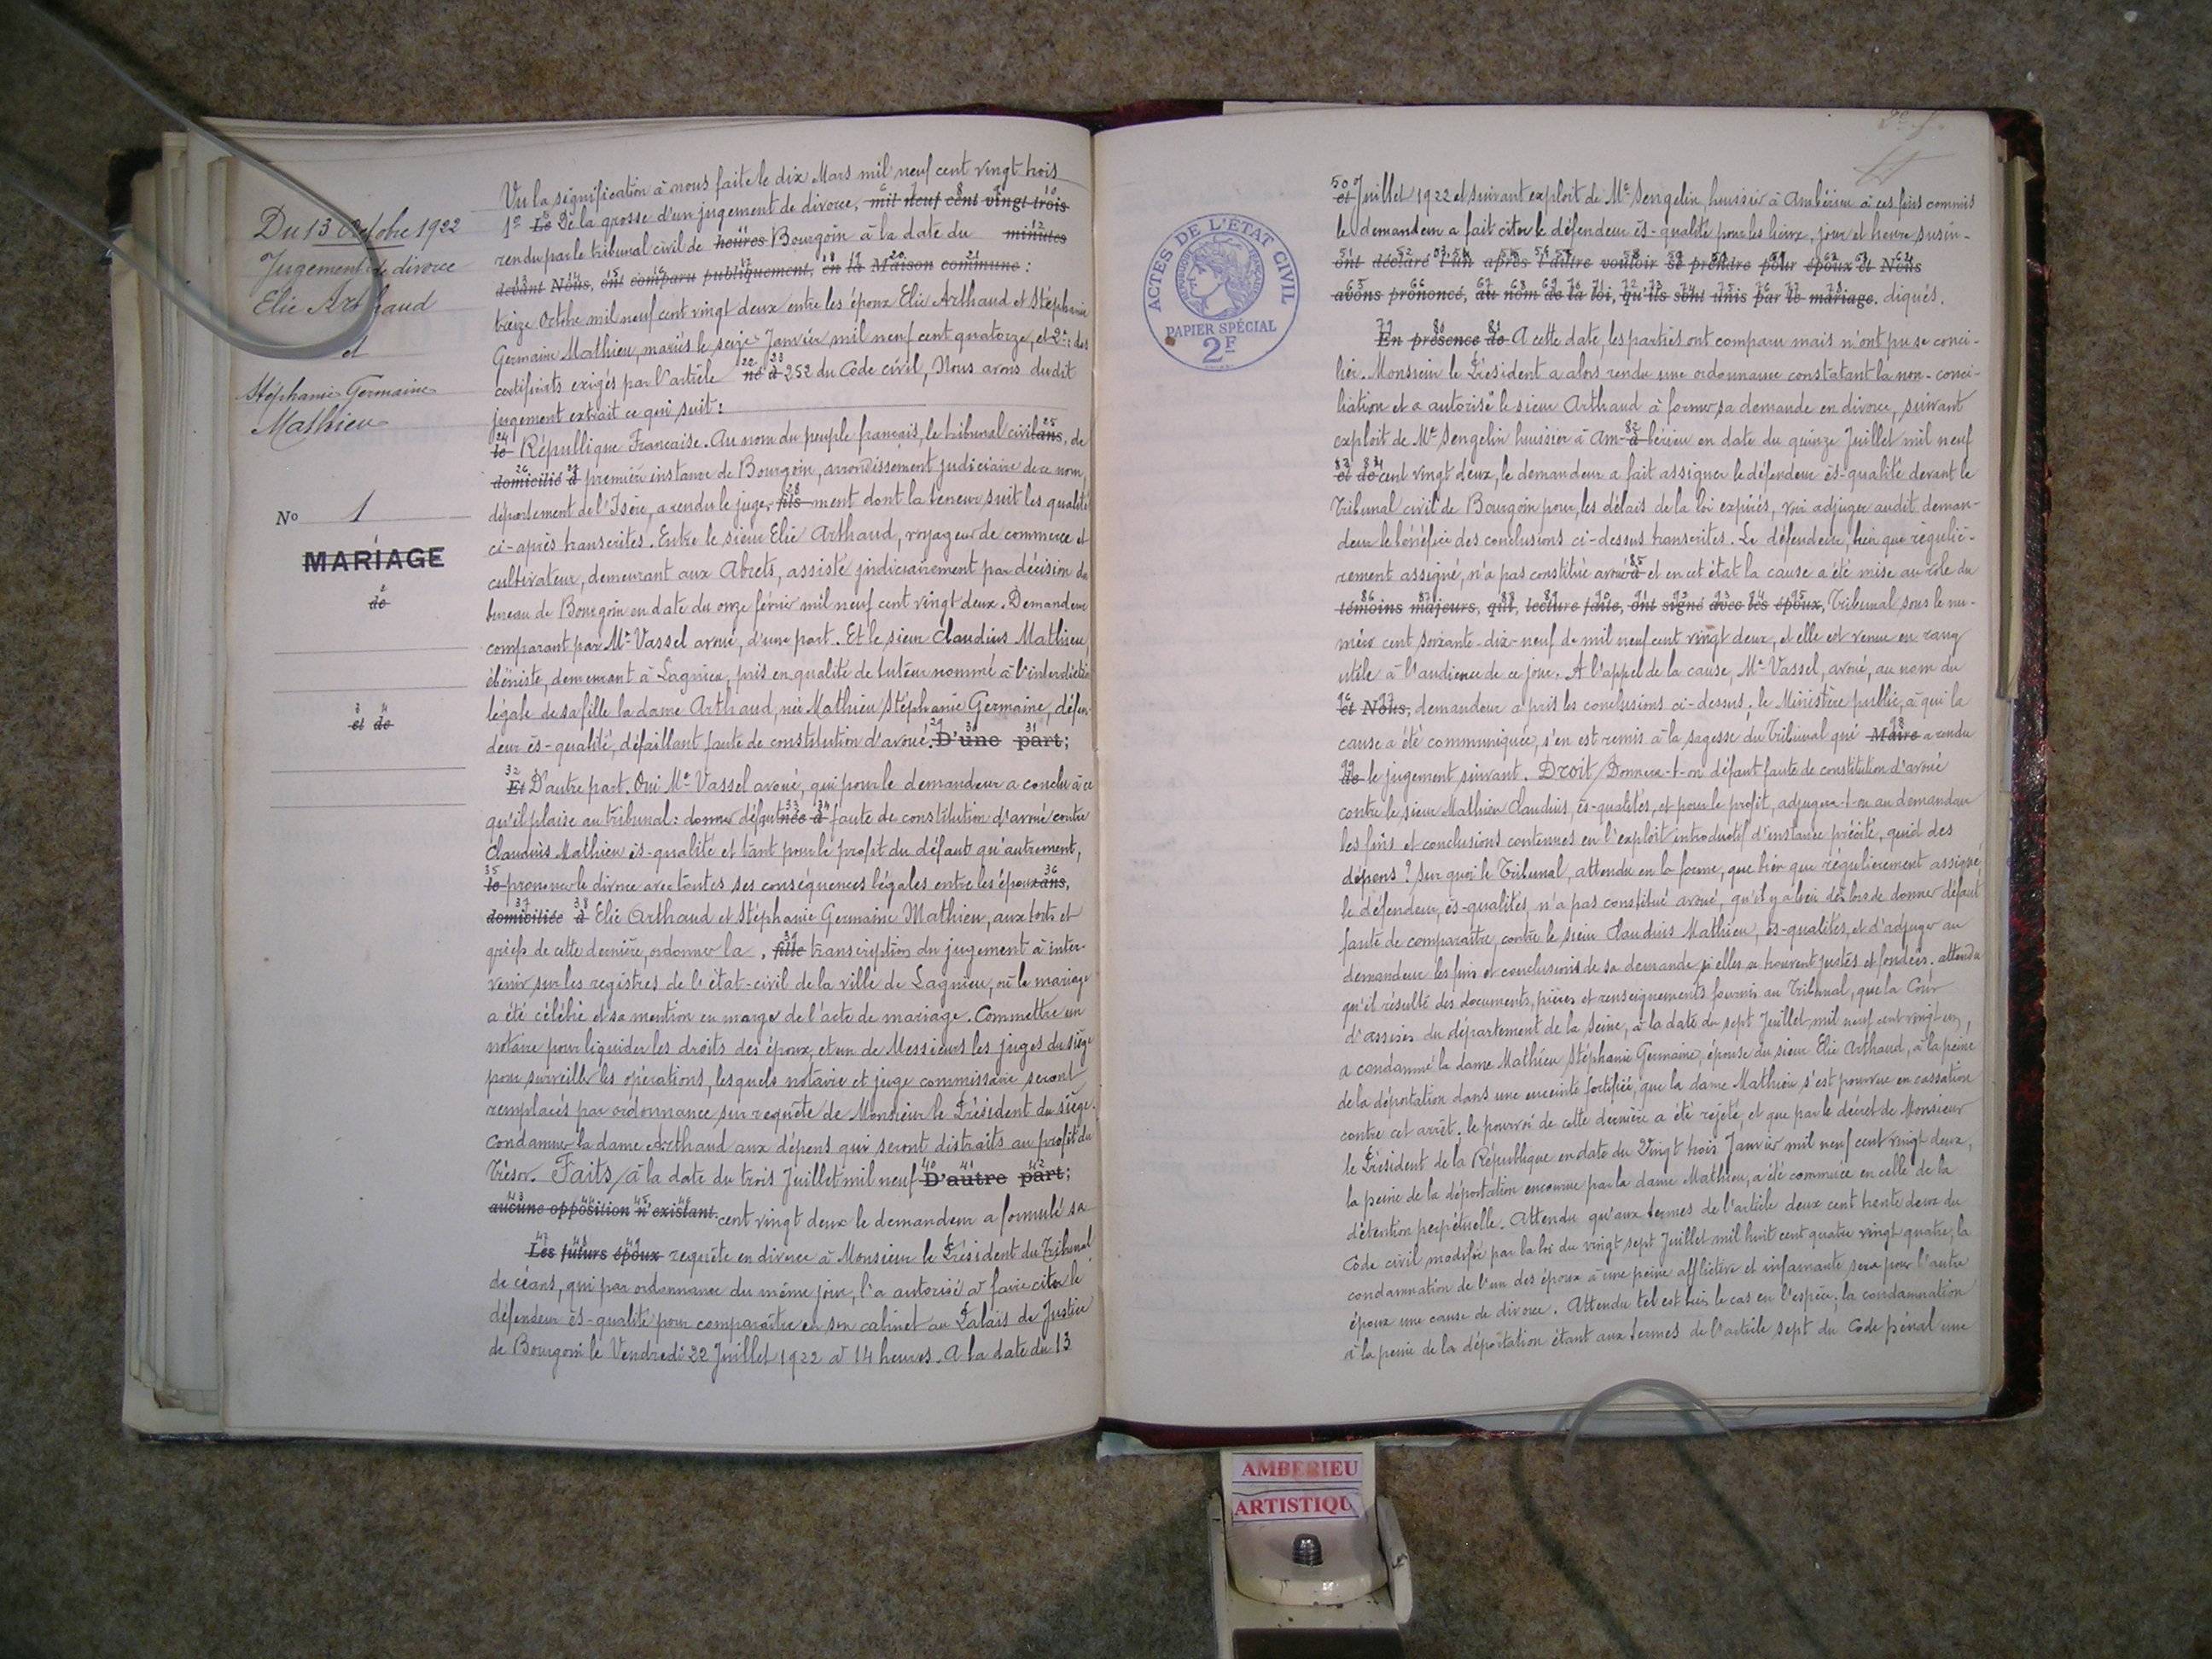 Du 13 Octobre 1922
Jugement de divorce
Elie Arthaud
et
Stéphanie Germaine
Mathieu
No 1
MARIAGE
de
et de
Vu la signification à nous faite le dix Mars mil neuf cent vingt trois
1º Le De la grosse d'un jugement de divorce, mil neuf cent vingt trois
rendu par le tribunal civil de heures Bourgoin à la date du minutes
devant Nous, ont comparu publiquement, en la Maison commune :
treize Octobre mil neuf cent vingt deux entre les époux Elie Arthaud et Stéphanie
Germaine Mathieu, mariés le seize Janvier mil neuf cent quatorze, et 2º : des
certificats exigés par l'article né à 252 du Code civil, Nous avons dudit
jugement extrait ce qui suit :
le République Française. Au nom du peuple français, le tribunal civil ans, de
domicilié à première instance de Bourgoin, arrondissement judiciaire de ce nom,
département de l'Isère, a rendu le juge, fils ment dont la teneur suit les qualités
ci-après transcrites. Entre le sieur Elie Arthaud, voyageur de commerce et
cultivateur, demeurant aux Abrets, assisté judiciairement par décision du
bureau de Bourgoin en date du onze février mil neuf cent vingt deux. Demandeur
comparant par Me Vassel avoué, d'une part. Et le sieur Claudius Mathieu,
ébéniste, demeurant à Lagnieu, pris en qualité de tuteur nommé à l'interdiction
légale de sa fille la dame Arthaud, née Mathieu Stéphanie Germaine, défen-
deur ès-qualité, défaillant faute de constitution d'avoué. D'une part;
Et D'autre part. Oui Me Vassel avoué, qui pour le demandeur a conclu à ce
qu'il plaise au tribunal : donner défaut née à faute de constitution d'avoué contre
Claudius Mathieu ès-qualité et tant pour le profit du défaut qu'autrement,
le prononcer le divorce avec toutes ses conséquences légales entre les époux ans,
domiciliée à Elie Arthaud et Stéphanie Germaine Mathieu, aux torts et
griefs de cette dernière, ordonner la , fille transcription du jugement à inter-
venir sur les registres de l'état-civil de la ville de Lagnieu, où le mariage
a été célébré et sa mention en marge de l'acte de mariage. Commettre un
notaire pour liquider les droits des époux et un de Messieurs les juges du siège
pour surveiller les opérations, lesquels notaire et juge commissaire seront
remplacés par ordonnance sur requête de Monsieur le Président du siège.
Condamner la dame Arthaud aux dépens qui seront distraits au profit du
Trésor. Faits / à la date du trois Juillet mil neuf D'autre part;
aucune opposition n'existant. cent vingt deux le demandeur a formulé sa
Les futurs époux requête en divorce à Monsieur le Président du Tribunal
de céans, qui par ordonnance du même jour, l'a autorisé à faire citer le
défendeur ès-qualité pour comparaître en son cabinet au Palais de Justice
de Bourgoin le Vendredi 22 Juillet 1922 à 14 heures. A la date du 13
ACTES DE L'ÉTAT CIVIL
RÉPUBLIQUE FRANÇAISE
PAPIER SPÉCIAL
2F
et Juillet 1922 et suivant exploit de Me Sengelin, huissier à Ambérieu à ces fins commis
le demandeur a fait citer le défendeur ès-qualité pour les lieux, jour et heure susin-
ont déclaré l'un après l'autre vouloir se prendre pour époux et Nous
avons prononcé, au nom de la loi, qu'ils sont unis par le mariage. diqués.
En présence de A cette date, les parties ont comparu mais n'ont pu se conci-
lier. Monsieur le Président a alors rendu une ordonnance constatant la non-conci-
liation et a autorisé le sieur Arthaud à former sa demande en divorce, suivant
exploit de Me Sengelin huissier à Am- à bérieu en date du quinze Juillet mil neuf
et de cent vingt deux, le demandeur a fait assigner le défendeur ès-qualité devant le
Tribunal civil de Bourgoin pour, les délais de la loi expirés, voir adjuger audit deman-
deur le bénéfice des conclusions ci-dessus transcrites. Le défendeur, bien que réguliè-
rement assigné, n'a pas constitué avoué à et en cet état la cause a été mise au rôle du
témoins majeurs, qui, lecture faite, ont signé avec les époux, Tribunal sous le nu-
méro cent soixante-dix-neuf de mil neuf cent vingt deux, et elle est venue en rang
utile à l'audience de ce jour. A l'appel de la cause, Me Vassel, avoué, au nom du
et Nous, demandeur a pris les conclusions ci-dessus, le Ministère public, à qui la
cause a été communiquée, s'en est remis à la sagesse du Tribunal qui Maire a rendu
de le jugement suivant. Droit / Donnera-t-on défaut faute de constitution d'avoué
contre le sieur Mathieu Claudius, ès-qualités, et pour le profit, adjugera-t-on au demandeur
les fins et conclusions contenues en l'exploit introductif d'instance précité, quid des
dépens ? Sur quoi le Tribunal, attendu en la forme, que bien que régulièrement assigné
le défendeur, ès-qualités, n'a pas constitué avoué, qu'il y a lieu dès lors de donner défaut
faute de comparaître, contre le sieur Claudius Mathieu, ès-qualités, et d'adjuger au
demandeur les fins et conclusions de sa demande si elles se trouvent justes et fondées. attendu
qu'il résulte des documents, pièces et renseignements fournis au Tribunal, que la Cour
d'assises du département de la Seine, à la date du sept Juillet mil neuf cent vingt un,
a condamné la dame Mathieu Stéphanie Germaine, épouse du sieur Elie Arthaud, à la peine
de la déportation dans une enceinte fortifiée, que la dame Mathieu s'est pourvue en cassation
contre cet arrêt. le pourvoi de cette dernière a été rejeté, et que par le décret de Monsieur
le Président de la République en date du Vingt trois Janvier mil neuf cent vingt deux,
la peine de la déportation encourue par la dame Mathieu, a été commuée en celle de la
détention perpétuelle. Attendu qu'aux termes de l'article deux cent trente deux du
Code civil modifié par la loi du vingt sept Juillet mil huit cent quatre vingt quatre, la
condamnation de l'un des époux à une peine afflictive et infamante sera pour l'autre
époux une cause de divorce. Attendu tel est bien le cas en l'espèce, la condamnation
à la peine de la déportation étant aux termes de l'article sept du Code pénal une
AMBERIEU
ARTISTIQU